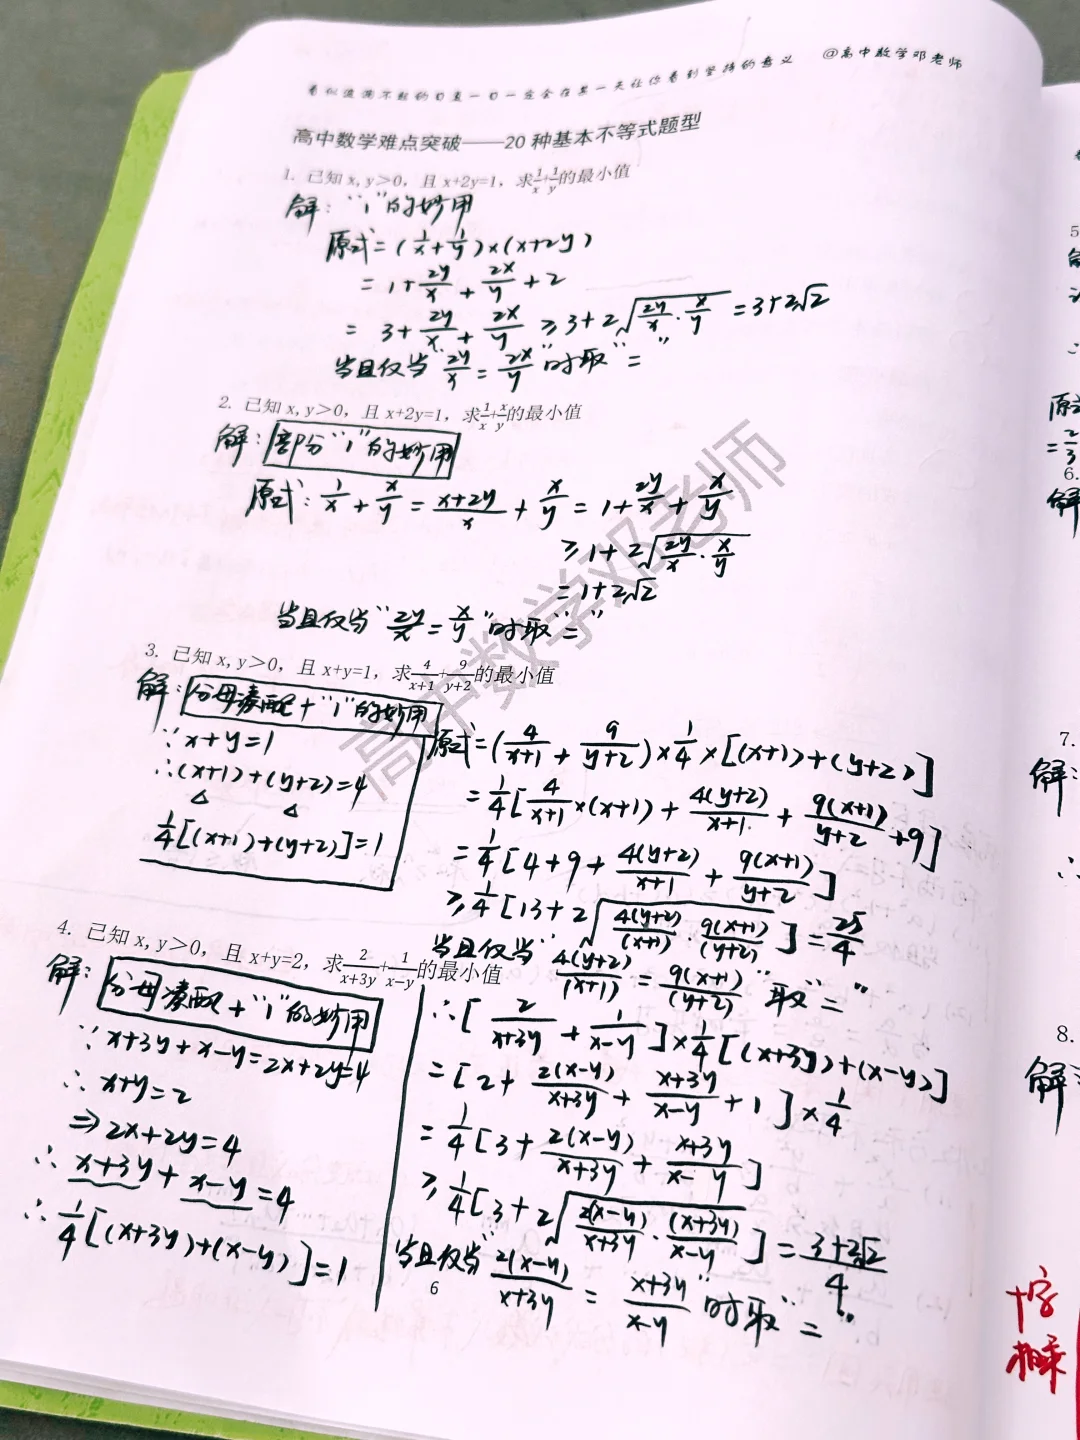 看似波澜不惊的日复一日一定会在某一天让你看到坚持的意义 @高中数学邓老师
高中数学难点突破——20 种基本不等式题型
1. 已知 x,y＞0，且 x+2y=1，求1/x+1/y的最小值
解：“1”的妙用
原式=(1/x+1/y)×(x+2y)
=1+2y/x+2x/y+2
=3+2y/x+2x/y≥3+2√(2y/x·x/y)=3+2√2
当且仅当“2y/x=2x/y”时取“=”
2. 已知 x,y＞0，且 x+2y=1，求1/x+x/y的最小值
解：部分“1”的妙用
原式：1/x+x/y=(x+2y)/x+x/y=1+2y/x+x/y
≥1+2√(2y/x·x/y)
=1+2√2
当且仅当“2y/x=x/y”时取“=”
3. 已知 x,y＞0，且 x+y=1，求4/(x+1)+9/(y+2)的最小值
解：分母凑配+“1”的妙用
∵x+y=1
∴(x+1)+(y+2)=4
1/4[(x+1)+(y+2)]=1
原式=(4/(x+1)+9/(y+2))×1/4×[(x+1)+(y+2)]
=1/4[4/(x+1)×(x+1)+4(y+2)/(x+1)+9(x+1)/(y+2)+9]
=1/4[4+9+4(y+2)/(x+1)+9(x+1)/(y+2)]
≥1/4[13+2√(4(y+2)/(x+1)·9(x+1)/(y+2))]=25/4
当且仅当“4(y+2)/(x+1)=9(x+1)/(y+2)”取“=”
4. 已知 x,y＞0，且 x+y=2，求2/(x+3y)+1/(x-y)的最小值
解：分母凑配+“1”的妙用
∵x+3y+x-y=2x+2y=4
∴x+y=2
⇒2x+2y=4
∴x+3y+x-y=4
∴1/4[(x+3y)+(x-y)]=1
∴[2/(x+3y)+1/(x-y)]×1/4[(x+3y)+(x-y)]
=[2+2(x-y)/(x+3y)+(x+3y)/(x-y)+1]×1/4
=1/4[3+2(x-y)/(x+3y)+(x+3y)/(x-y)]
≥1/4[3+2√(2(x-y)/(x+3y)·(x+3y)/(x-y))]=(3+2√2)/4
当且仅当“2(x-y)/(x+3y)=(x+3y)/(x-y)”时取“=”
6
高中数学邓老师
5
解
原式
=2/3
6.
解
7.
解:
∴
8.
解:
十字
相乘